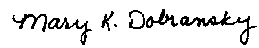 Mary K. Dobransky